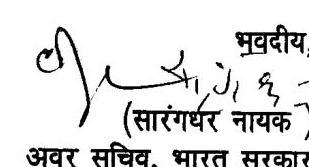 भवदीय,
(सारंगधर नायक)
अवर सचिव, भारत सरकार